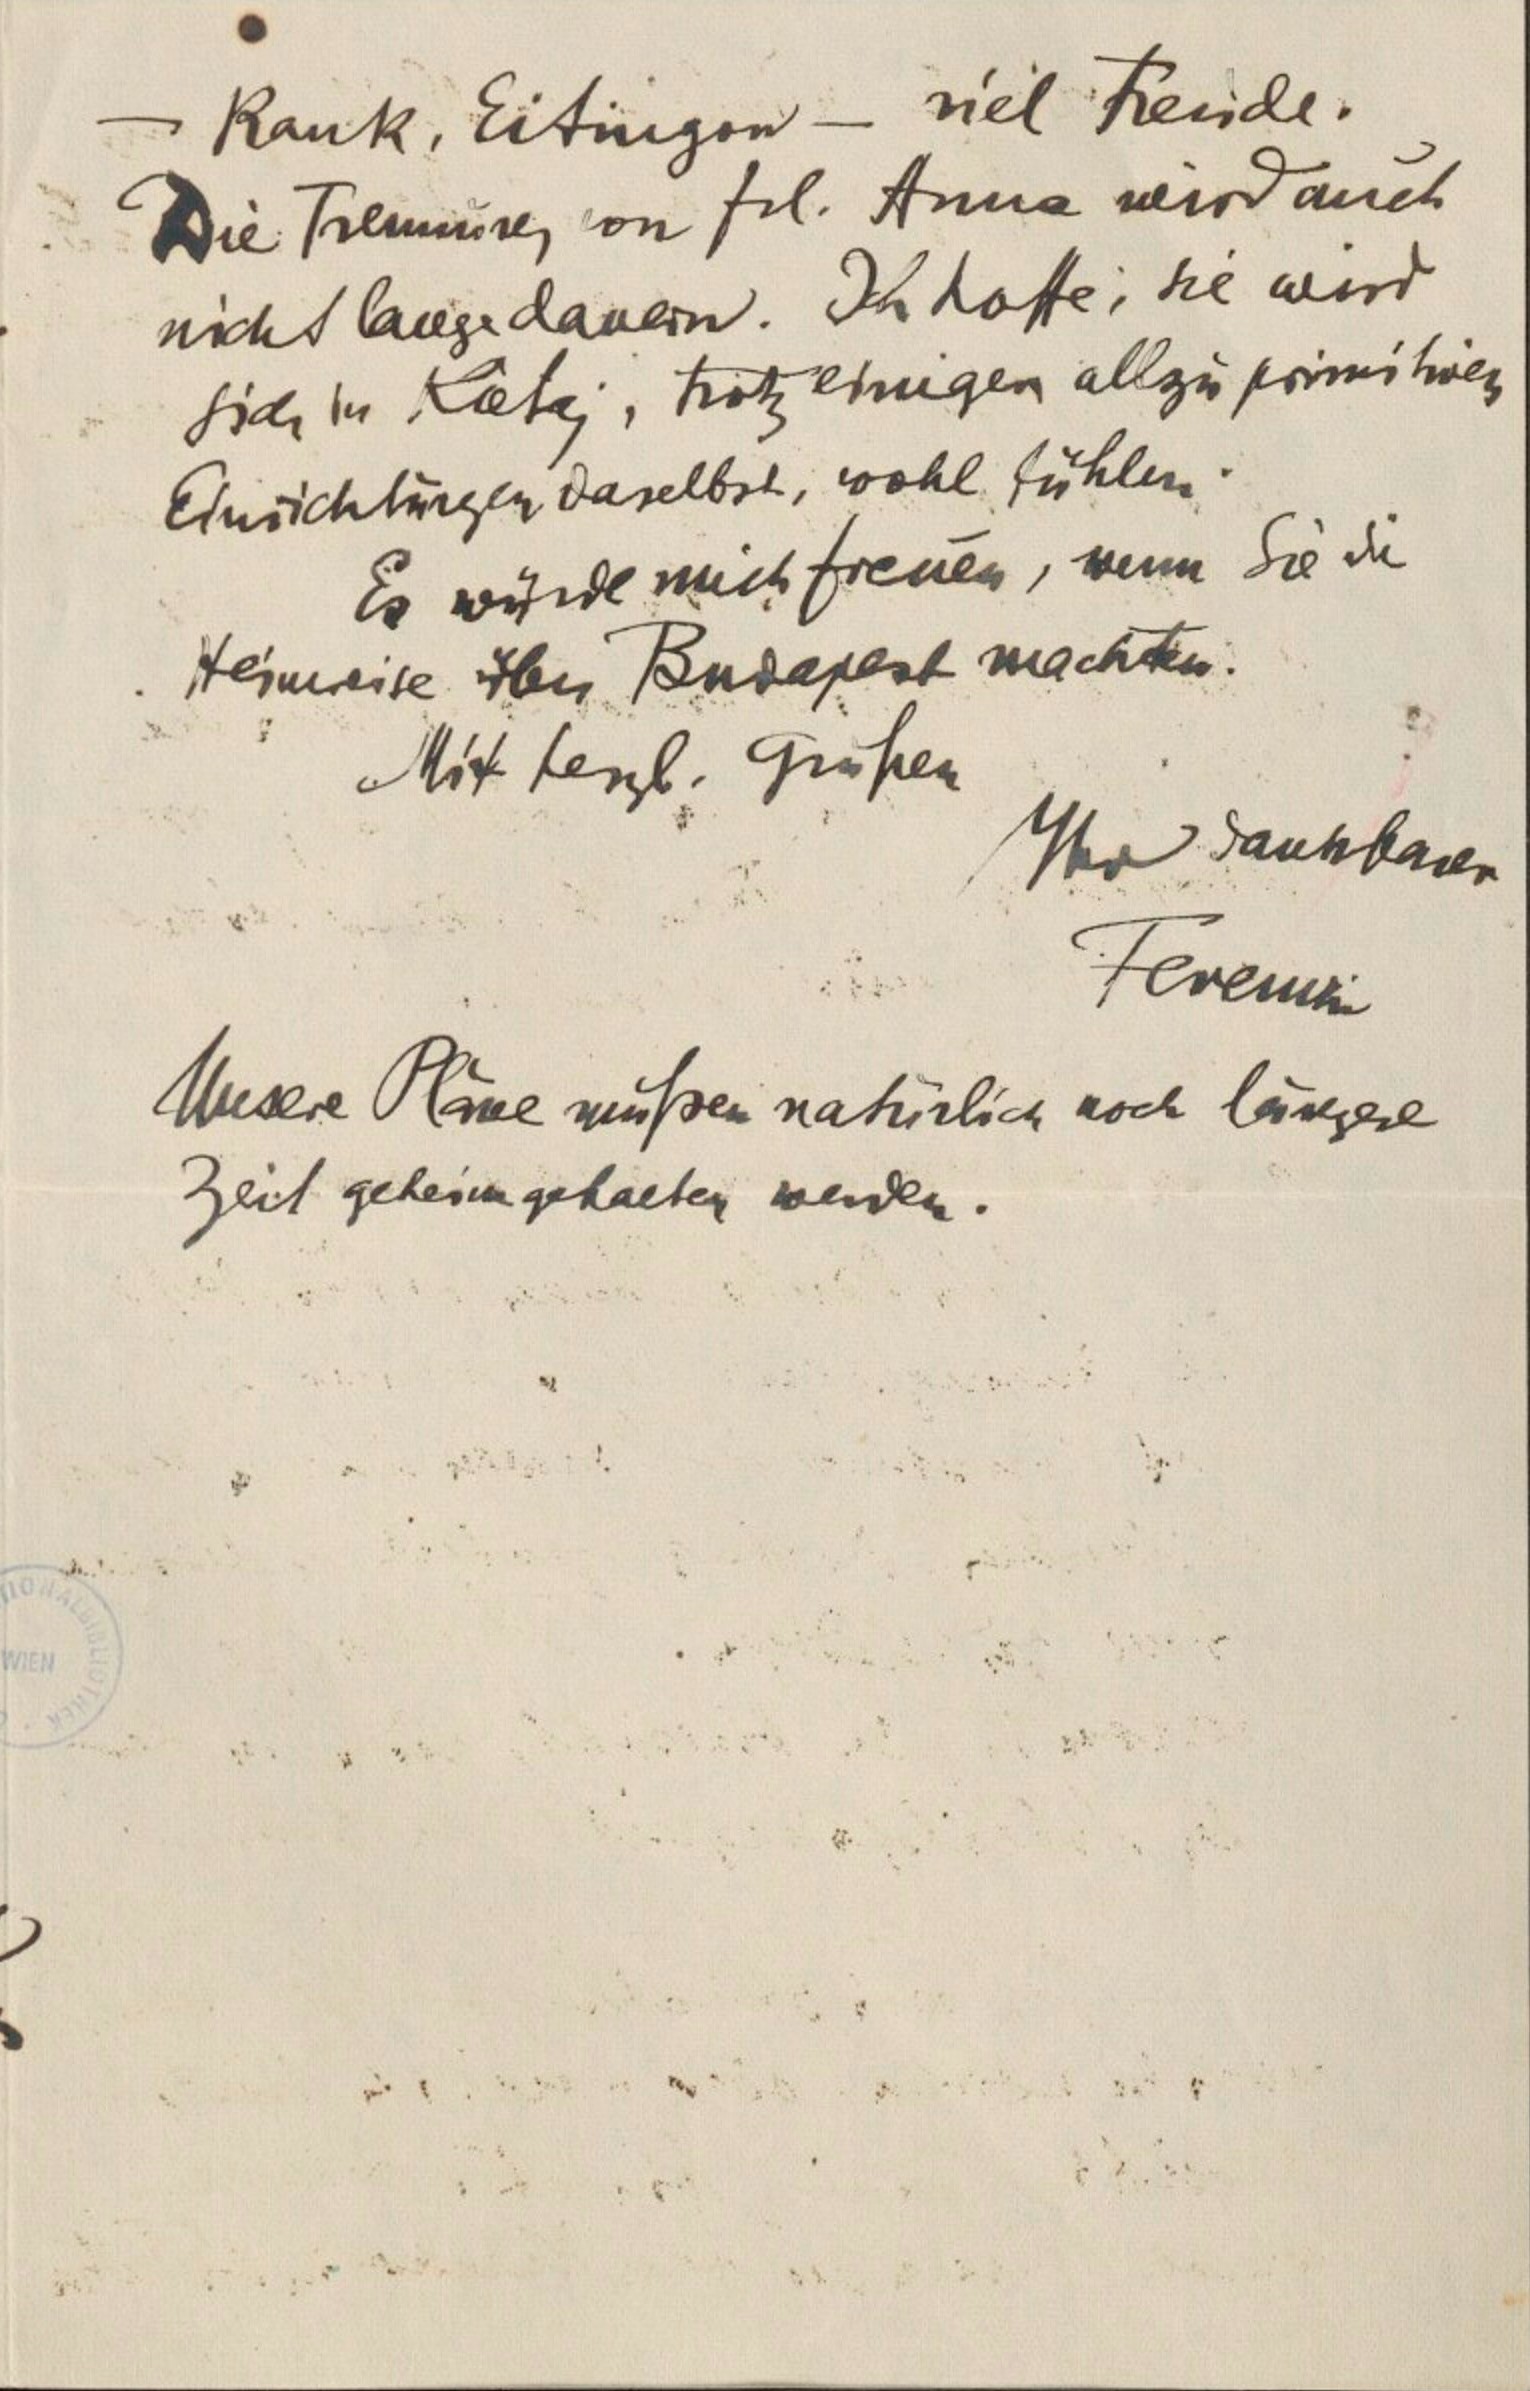 — Rank, Eitingon — viel Freude.
Die Trennung von Frl. Anna wird auch
nicht lange dauern. Ich hoffe, sie wird
sich in Kótaj, trotz einigen allzu primitiven
Einrichtungen daselbst, wohl fühlen.
Es würde mich freuen, wenn Sie die
Heimreise über Budapest machten.
Mit herzl. Grüßen
Ihr dankbarer
Ferenczi
Unsere Pläne müßen natürlich noch längere
Zeit geheimgehalten werden.
TIONALBIBLIOTHEK
WIEN